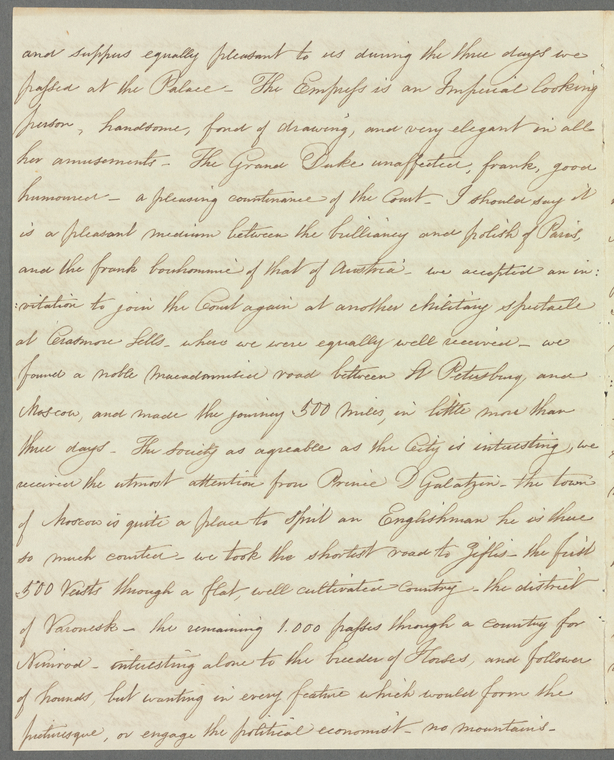 and suppers equally pleasant to us during the three days we
passed at the Palace - The Empress is an Imperial looking
person, handsome, fond of drawing, and very elegant in all
her amusements - The Grand Duke unaffected, frank, good
humoured - a pleasing countenance of the Court - I should say it
is a pleasant medium between the brilliancy and polish of Paris,
and the frank bonhommie of that of Austria - we accepted an in:
:vitation to join the Court again at another Military spectacle
at - where we were equally well received - we
found a noble macadamised road between St Petersburg, and
Moscow, and made the journey 500 miles, in little more than
three days - The Society as agreeable as the City is interesting, we
received the utmost attention from Prince D Galatzin - the town
of Moscow is quite a place to spoil an Englishman he is there
so much courted - we took the shortest road to Tiflis - the first
500 Versts through a flat well cultivated country - the district
of Varonesk - the remaining 1.000 passes through a country for
Nimrod - interesting alone to the breeder of Horses, and follower
of hounds, but wanting in every feature which would form the
picturesque, or engage the political economist - no mountains -